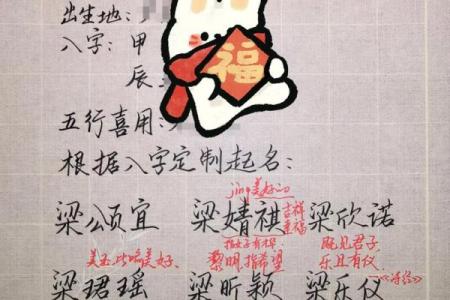 出生地:
八字: 甲
辰
福
五行喜用:
根据八字定制起名:
jing美好的
梁颂宜 梁婧祺 吉祥幸福 梁欣诺
美玉比喻美好 黎明,指希望 既见君子
乐且有仪
《诗经》
梁珺瑶 梁昕颖 梁乐仪